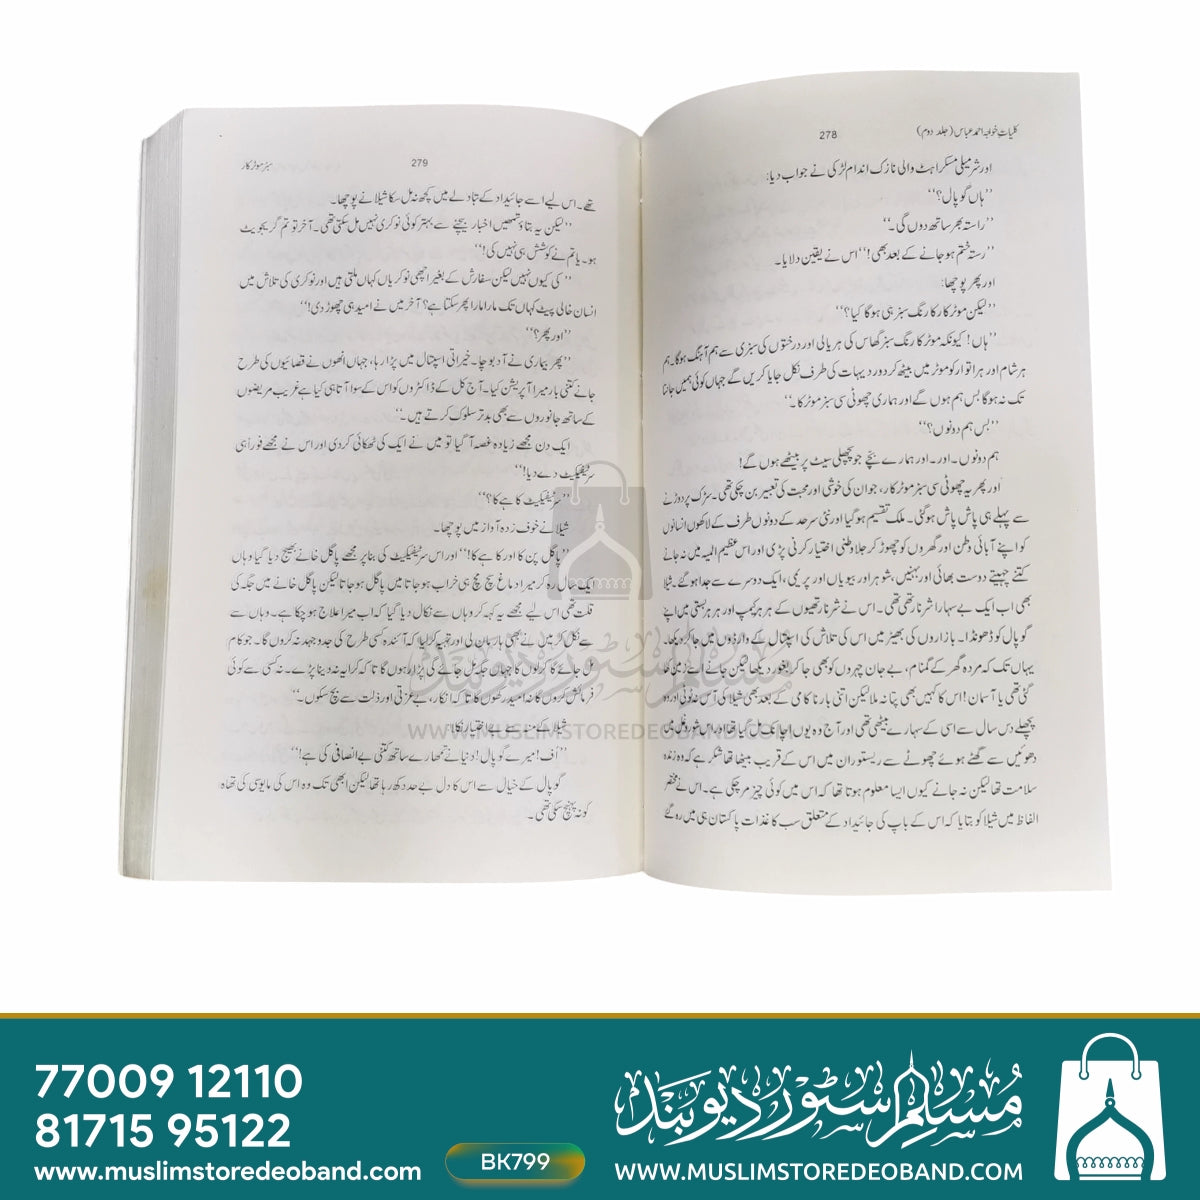 کلیات خواجہ احمد عباس (جلد دوم)
278
اور شرمیلی مسکراہٹ والی نازک اندام لڑکی نے جواب دیا:
”ہاں گوپال؟“
”راستہ بھر ساتھ دوں گی۔“
”رستہ ختم ہو جانے کے بعد بھی!“ اس نے یقین دلایا۔
اور پھر پوچھا:
”لیکن موٹر کار کا رنگ سبز ہی ہوگا کیا؟“
”ہاں! کیونکہ موٹر کا رنگ سبز گھاس کی ہریالی اور درختوں کی سبزی سے ہم آہنگ ہوگا۔ ہم
ہر شام اور ہر اتوار کو موٹر میں بیٹھ کر دور دیہات کی طرف نکل جایا کریں گے جہاں کوئی ہمیں جانتا
تک نہ ہوگا بس ہم ہوں گے اور ہماری چھوٹی سی سبز موٹر کار۔“
”بس ہم دونوں؟“
ہم دونوں۔ اور۔ اور ہمارے بچے جو پچھلی سیٹ پر بیٹھے ہوں گے!
اور پھر یہ چھوٹی سی سبز موٹر کار، جو ان کی خوشی اور محبت کی تعبیر بن چکی تھی۔ سڑک پر دوڑنے
سے پہلے ہی پاش پاش ہوگئی۔ ملک تقسیم ہوگیا اور نئی سرحد کے دونوں طرف کے لاکھوں انسانوں
کو اپنے آبائی وطن اور گھروں کو چھوڑ کر جلا وطنی اختیار کرنی پڑی اور اس عظیم المیہ میں نہ جانے
کتنے چہیتے دوست بھائی اور بہنیں، شوہر اور بیویاں اور پریمی، ایک دوسرے سے جدا ہوگئے۔ شیلا
بھی اب ایک بے سہارا شرنارتھی تھی۔ اس نے شرنارتھیوں کے ہر ہر کیمپ اور ہر ہر بستی میں اپنے
گوپال کو ڈھونڈا۔ بازاروں کی بھیڑ میں اس کی تلاش کی اسپتال کے وارڈوں میں جا کر دیکھا۔
یہاں تک کہ مردہ گھر کے گمنام، بے جان چہروں کو بھی جا کر بغور دیکھا لیکن جانے اسے زمین کھا
گئی تھی یا آسمان! اس کا کہیں بھی پتا نہ ملا لیکن اتنی بار ناکامی کے بعد بھی شیلا کی آس نہ ٹوٹی اور وہ
پچھلے دس سال سے اسی کے سہارے بیٹھی تھی اور آج وہ یوں اچانک مل گیا تھا اور اس شور و غل
دھوئیں سے گھٹے ہوئے چھوٹے سے ریستوران میں اس کے قریب بیٹھا تھا شکر ہے کہ وہ زندہ
سلامت تھا لیکن نہ جانے کیوں ایسا معلوم ہوتا تھا کہ اس میں کوئی چیز مر چکی ہے۔ اس نے مختصر
الفاظ میں شیلا کو بتایا کہ اس کے باپ کی جائیداد کے متعلق سب کاغذات پاکستان ہی میں رہ گئے
279
سبز موٹر کار
تھے۔ اس لیے اسے جائیداد کے تبادلے میں کچھ نہ مل سکا شیلا نے پوچھا۔
”لیکن یہ بتاؤ تمھیں اخبار بیچنے سے بہتر کوئی نوکری نہیں مل سکتی تھی۔ آخر تو تم گریجویٹ
ہو۔ یا تم نے کوشش ہی نہیں کی!“
”کی کیوں نہیں لیکن سفارش کے بغیر اچھی نوکریاں کہاں ملتی ہیں اور نوکری کی تلاش میں
انسان خالی پیٹ کہاں تک مارا مارا پھر سکتا ہے؟ آخر میں نے امید ہی چھوڑ دی!“
”اور پھر؟“
”پھر بیماری نے آدبوچا۔ خیراتی اسپتال میں پڑا رہا، جہاں انھوں نے قصائیوں کی طرح
جانے کتنی بار میرا آپریشن کیا۔ آج کل کے ڈاکٹروں کو اس کے سوا آتا ہی کیا ہے غریب مریضوں
کے ساتھ جانوروں سے بھی بدتر سلوک کرتے ہیں۔“
ایک دن مجھے زیادہ غصہ آگیا تو میں نے ایک کی ٹھکائی کردی اور اس نے مجھے فوراً ہی
سرٹیفیکیٹ دے دیا!“
”سرٹیفیکیٹ کاہے کا؟“
شیلا نے خوف زدہ آواز میں پوچھا۔
”پاگل پن کا اور کاہے کا!“ اور اس سرٹیفیکیٹ کی بنا پر مجھے پاگل خانے بھیج دیا گیا وہاں
ایک سال رہ کر میرا دماغ سچ مچ ہی خراب ہو جاتا میں پاگل ہو جاتا لیکن پاگل خانے میں جگہ کی
قلت تھی اس لیے مجھے یہ کہہ کر وہاں سے نکال دیا گیا کہ اب میرا علاج ہو چکا ہے۔ وہاں سے
سے نکل کر میں نے بھی ہار مان لی اور تہیہ کرلیا کہ آئندہ کسی طرح کی جدوجہد نہ کروں گا۔ جو کام
مل جائے گا کرلوں گا جہاں جگہ مل جائے گی پڑا رہوں گا تاکہ کرایہ نہ دینا پڑے۔ نہ کسی سے کوئی
فرمائش کروں گا نہ امید رکھوں گا تاکہ انکار، بے عزتی اور ذلت سے بچ سکوں۔“
شیلا کے منہ سے بے اختیار نکلا۔
”اُف! میرے گوپال! دنیا نے تمھارے ساتھ کتنی بے انصافی کی ہے!“
گوپال کے خیال سے اس کا دل بے حد دکھ رہا تھا لیکن ابھی تک وہ اس کی مایوسی کی تھاہ
کو نہ پہنچ سکی تھی۔
مسلم سٹور دیوبند
WWW.MUSLIMSTOREDEOBAND.COM
77009 12110
81715 95122
www.muslimstoredeoband.com
BK799
مسلم سٹور دیوبند
WWW.MUSLIMSTOREDEOBAND.COM